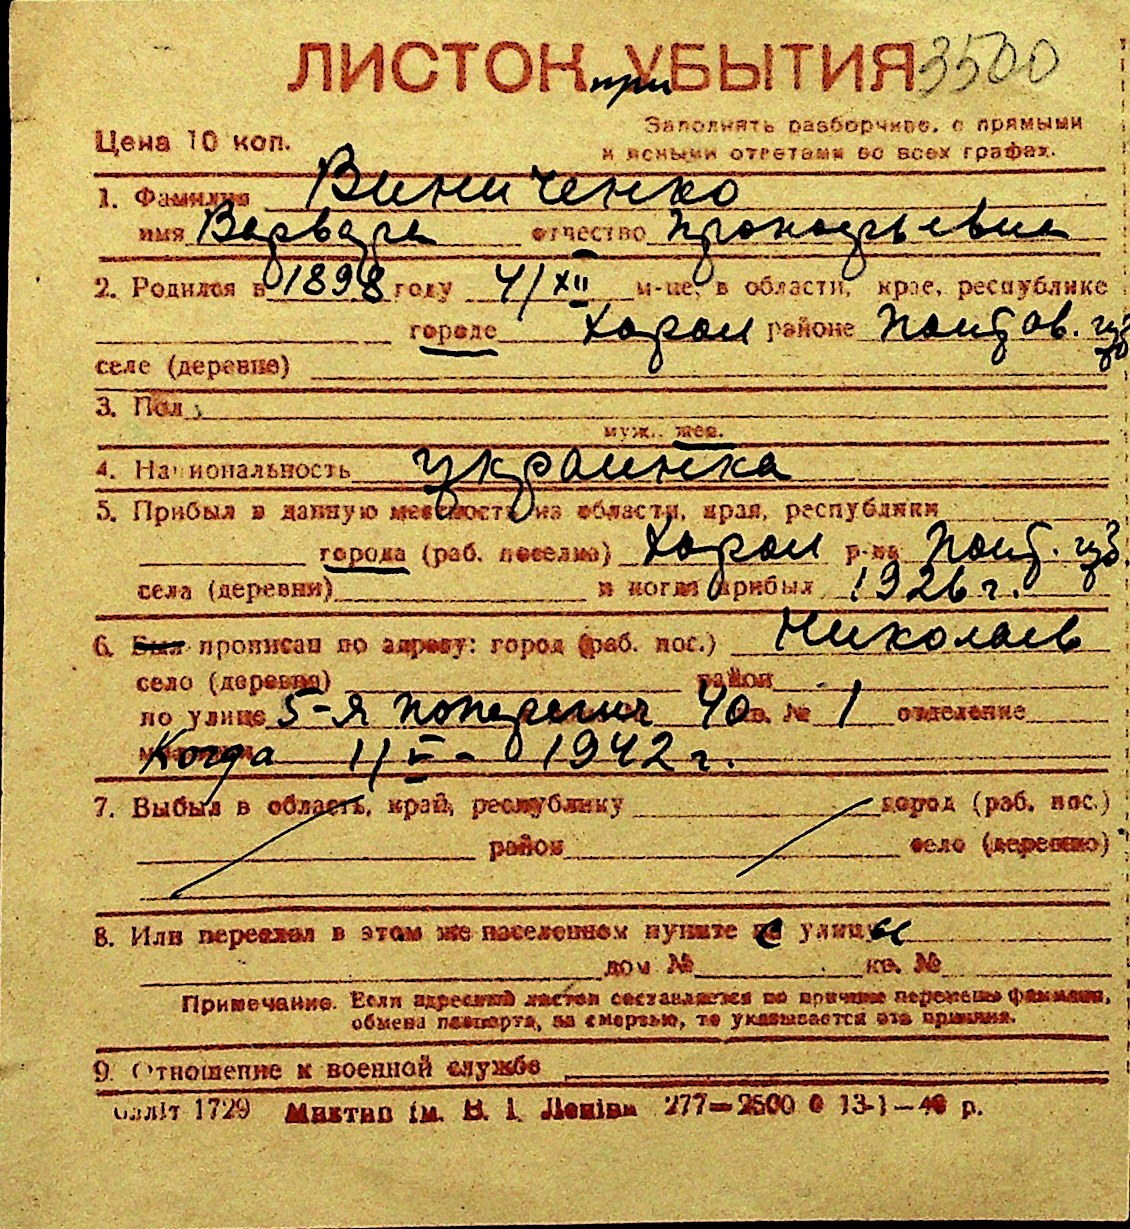 ЛИСТОК при УБЫТИЯ 3500
Цена 10 коп.
Заполнять разборчиво, с прямыми
и ясными ответами во всех графах.
1. Фамилия Виниченко
имя Варвара отчество Прокофьевна
2. Родился в 1898 году 4/XII м-це, в области, крае, республике
городе Хорол районе Полтав. губ
селе (деревне)
3. Пол
муж. жен.
4. Национальность украинка
5. Прибыл в данную местность из области, края, республики
города (раб. поселка) Хорол р-на Полт. губ.
села (деревни) и когда прибыл 1926 г.
6. Был прописан по адресу: город (раб. пос.) Николаев
село (деревня) район
по улице 5-я попереч 40 кв. № 1 отделение
Когда 1/V - 1942 г.
7. Выбыл в область, край, республику город (раб. пос.)
район село (деревню)
8. Или переехал в этом же населенном пункте с улицы
дом № кв. №
Примечание. Если адресный листок составляется по причине перемены фамилии,
обмена паспорта, за смертью, то указывается эта причина.
9. Отношение к военной службе
Обліт 1729 ім. В. І. Леніна 277—2500 13-1—40 р.